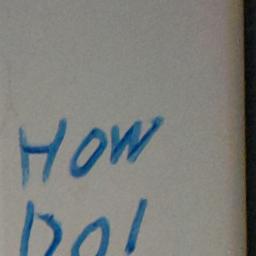 HOW
DO!